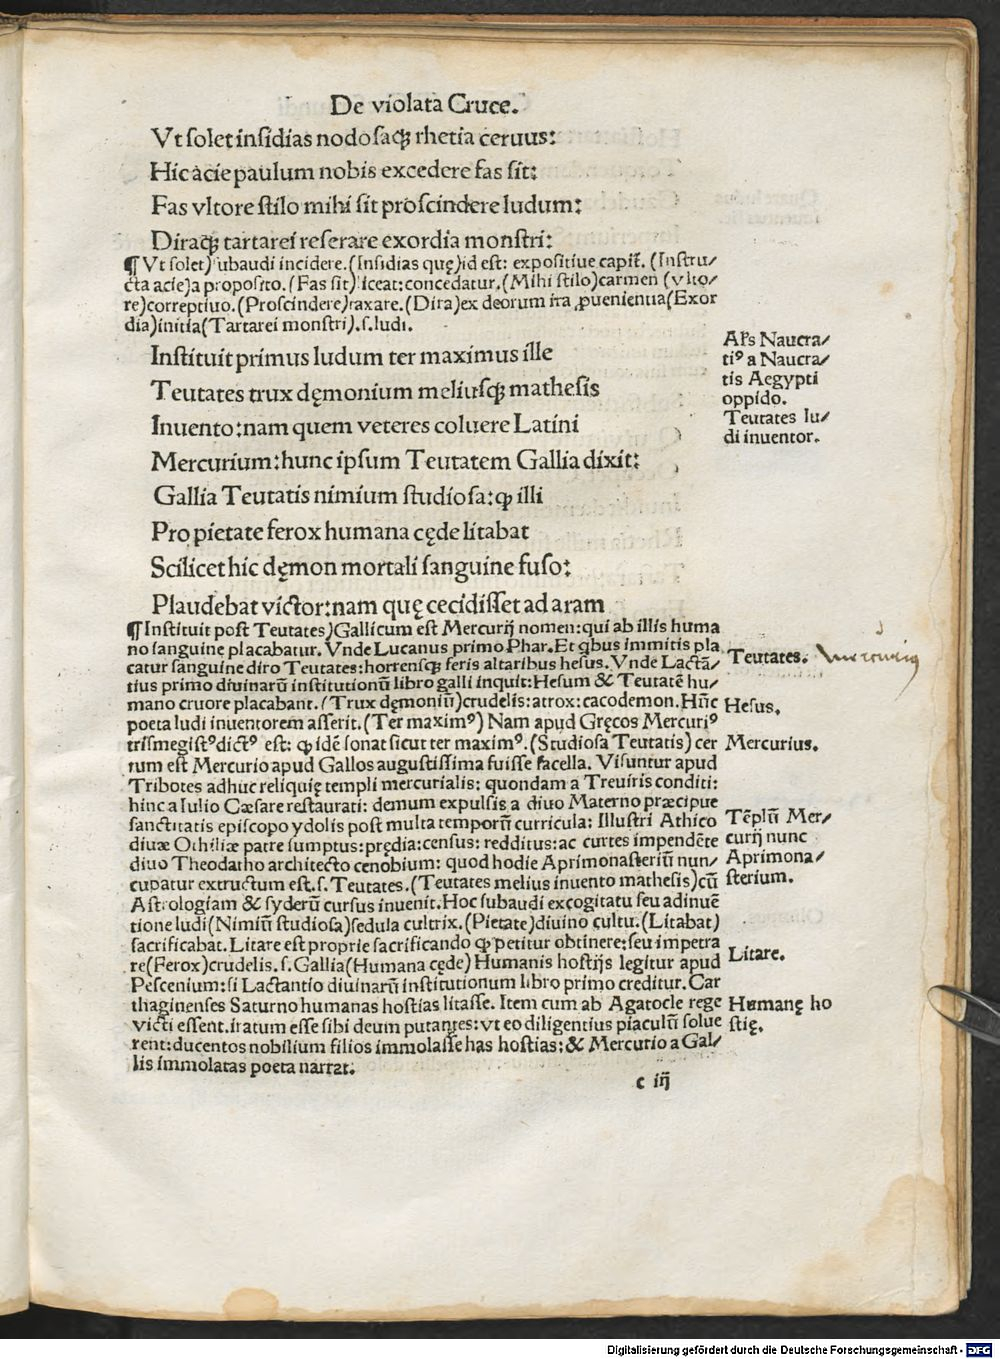 De violata Cruce.
Vt solet insidias nodosaqꝫ rhetia ceruus:
Hic acie paulum nobis excedere fas sit:
Fas vltore stilo mihi sit proscindere ludum:
Diraqꝫ tartarei reserare exordia monstri:
¶ Vt solet) subaudi incidere. (Insidias quę) id est: expositiue capit͛. (Instru/
cta acie) a proposito. (Fas sit) liceat: concedatur. (Mihi stilo) carmen (vlto/
re) correptiuo. (Proscindere) taxare. (Dira) ex deorum ira ꝓuenientia (Exor
dia) initia (Tartarei monstri). s. ludi.
Instituit primus ludum ter maximus ille
Teutates trux dęmonium meliusqꝫ mathesis
Inuento: nam quem veteres coluere Latini
Mercurium: hunc ipsum Teutatem Gallia dixit:
Gallia Teutatis nimium studiosa: ꝙ illi
Pro pietate ferox humana cęde litabat
Scilicet hic dęmon mortali sanguine fuso:
Plaudebat victor: nam quę cecidisset ad aram
Naucra/
tiꝰ a Naucra/
tis Aegypti
oppido.
Teutates lu/
di inuentor.
¶ Instituit post Teutates) Gallicum est Mercurij nomen: qui ab illis huma
no sanguine placabatur. Vnde Lucanus primo Phar. Et qbus immitis pla
catur sanguine diro Teutates: horrensqꝫ feris altaribus hesus. Vnde Lactā/
tius primo diuinarū institutionū libro galli inquit: Hesum & Teutatē hu/
mano cruore placabant. (Trux dęmoniū) crudelis: atrox: cacodemon. Hūc
poeta ludi inuentorem asserit. (Ter maximꝰ) Nam apud Gręcos Mercuriꝰ
trismegistꝰ dictꝰ est: ꝙ idē sonat sicut ter maximꝰ. (Studiosa Teutatis) cer
tum est Mercurio apud Gallos augustissima fuisse sacella. Visuntur apud
Tribotes adhuc reliquię templi mercurialis: quondam a Treuiris conditi:
hinc a Iulio Cæsare restaurati: demum expulsis a diuo Materno præcipue
sanctitatis episcopo ydolis post multa temporū curricula: Illustri Athico
diuæ Othiliæ patre sumptus: prędia: census: redditus: ac curtes impendēte
diuo Theodatho architecto cenobium: quod hodie Aprimonasteriū nun/
cupatur extructum est. s. Teutates. (Teutates melius inuento mathesis) cū
Astrologiam & syderū cursus inuenit. Hoc subaudi excogitatu seu adinuē
tione ludi (Nimiū studiosa) sedula cultrix. (Pietate) diuino cultu. (Litabat)
sacrificabat. Litare est proprie sacrificando ꝙ petitur obtinere: seu impetra
re (Ferox) crudelis. s. Gallia (Humana cęde) Humanis hostijs legitur apud
Pescenium: si Lactantio diuinarū institutionum libro primo creditur. Car
thaginenses Saturno humanas hostias litasse. Item cum ab Agatocle rege
victi essent. iratum esse sibi deum putantes: vt eo diligentius piaculū solue
rent: ducentos nobilium filios immolasse has hostias: & Mercurio a Gal/
lis immolatas poeta narrat.
Teutates. Mercurius
Hesus.
Mercurius.
Tēplū Mer/
curij nunc
Aprimona/
sterium.
Litare.
Humanę ho
stię.
c iij
Digitalisierung gefördert durch die Deutsche Forschungsgemeinschaft - DFG